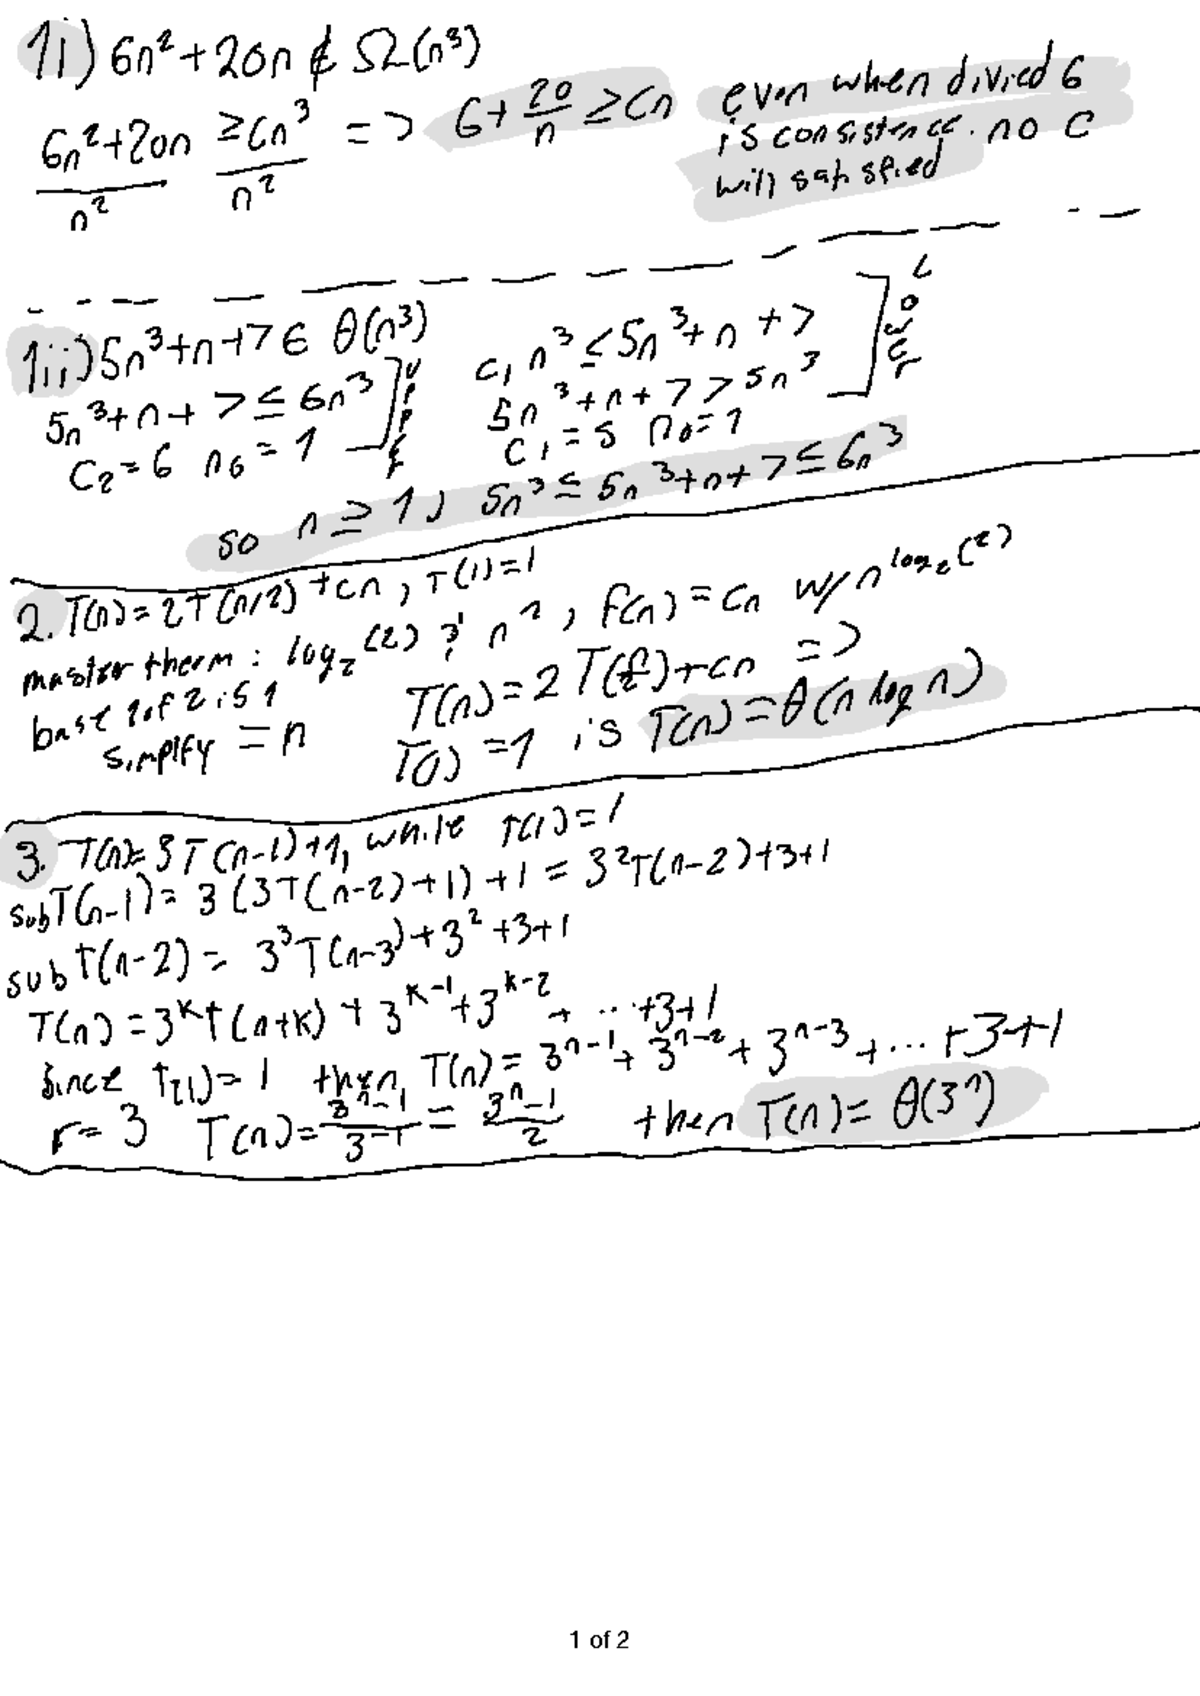 1i) 6n²+20n ∉ Ω(n³)
6n²+20n/n² ≥cn³/n² => 6+20/n ≥cn even when divied 6
is consistence. no c
will satisfied
1ii) 5n³+n+7 ∈ θ(n³)
5n³+n+7≤6n³
C₂=6 n₀=1
upper
c₁n³≤5n³+n+7
5n³+n+7>5n³
C₁=5 n₀=1
Lower
so n≥1, 5n³≤5n³+n+7≤6n³
2. T(n)=2T(n/2)+cn, T(1)=1
master therm: log₂(2) n¹, f(n)=cn w/ n^log₂(2)
base 2 is 1
simplify = n
T(n)=2T()+cn =>
T(1)=1 is T(n)=θ(n log n)
3. T(n)=3T(n-1)+1, while T(1)=1
sub T(n-1)= 3(3T(n-2)+1)+1=3²T(n-2)+3+1
sub T(n-2)= 3³T(n-3)+3²+3+1
T(n)=3ᵏT(n+k)+3ᵏ⁻¹+3ᵏ⁻²+...+3+1
Since T(1)=1 then, T(n)=3ⁿ⁻¹+3ⁿ⁻²+3ⁿ⁻³+...+3+1
r=3 T(n)=3ⁿ-1/3-1=3ⁿ-1/2 then T(n)=θ(3ⁿ)
1 of 2